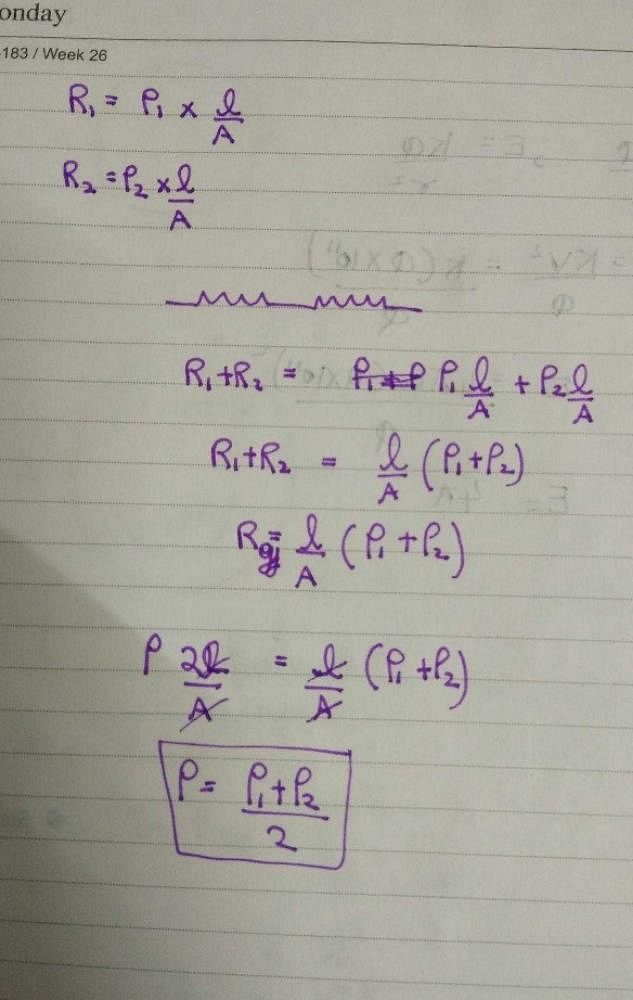 onday
183 / Week 26
R₁ = ρ₁ × l/A
R₂ = ρ₂ × l/A
R₁+R₂ = ρ₁ l/A + ρ₂ l/A
R₁+R₂ = l/A (ρ₁+ρ₂)
Req = l/A (ρ₁+ρ₂)
ρ 2l/A = l/A (ρ₁+ρ₂)
ρ = ρ₁+ρ₂/2